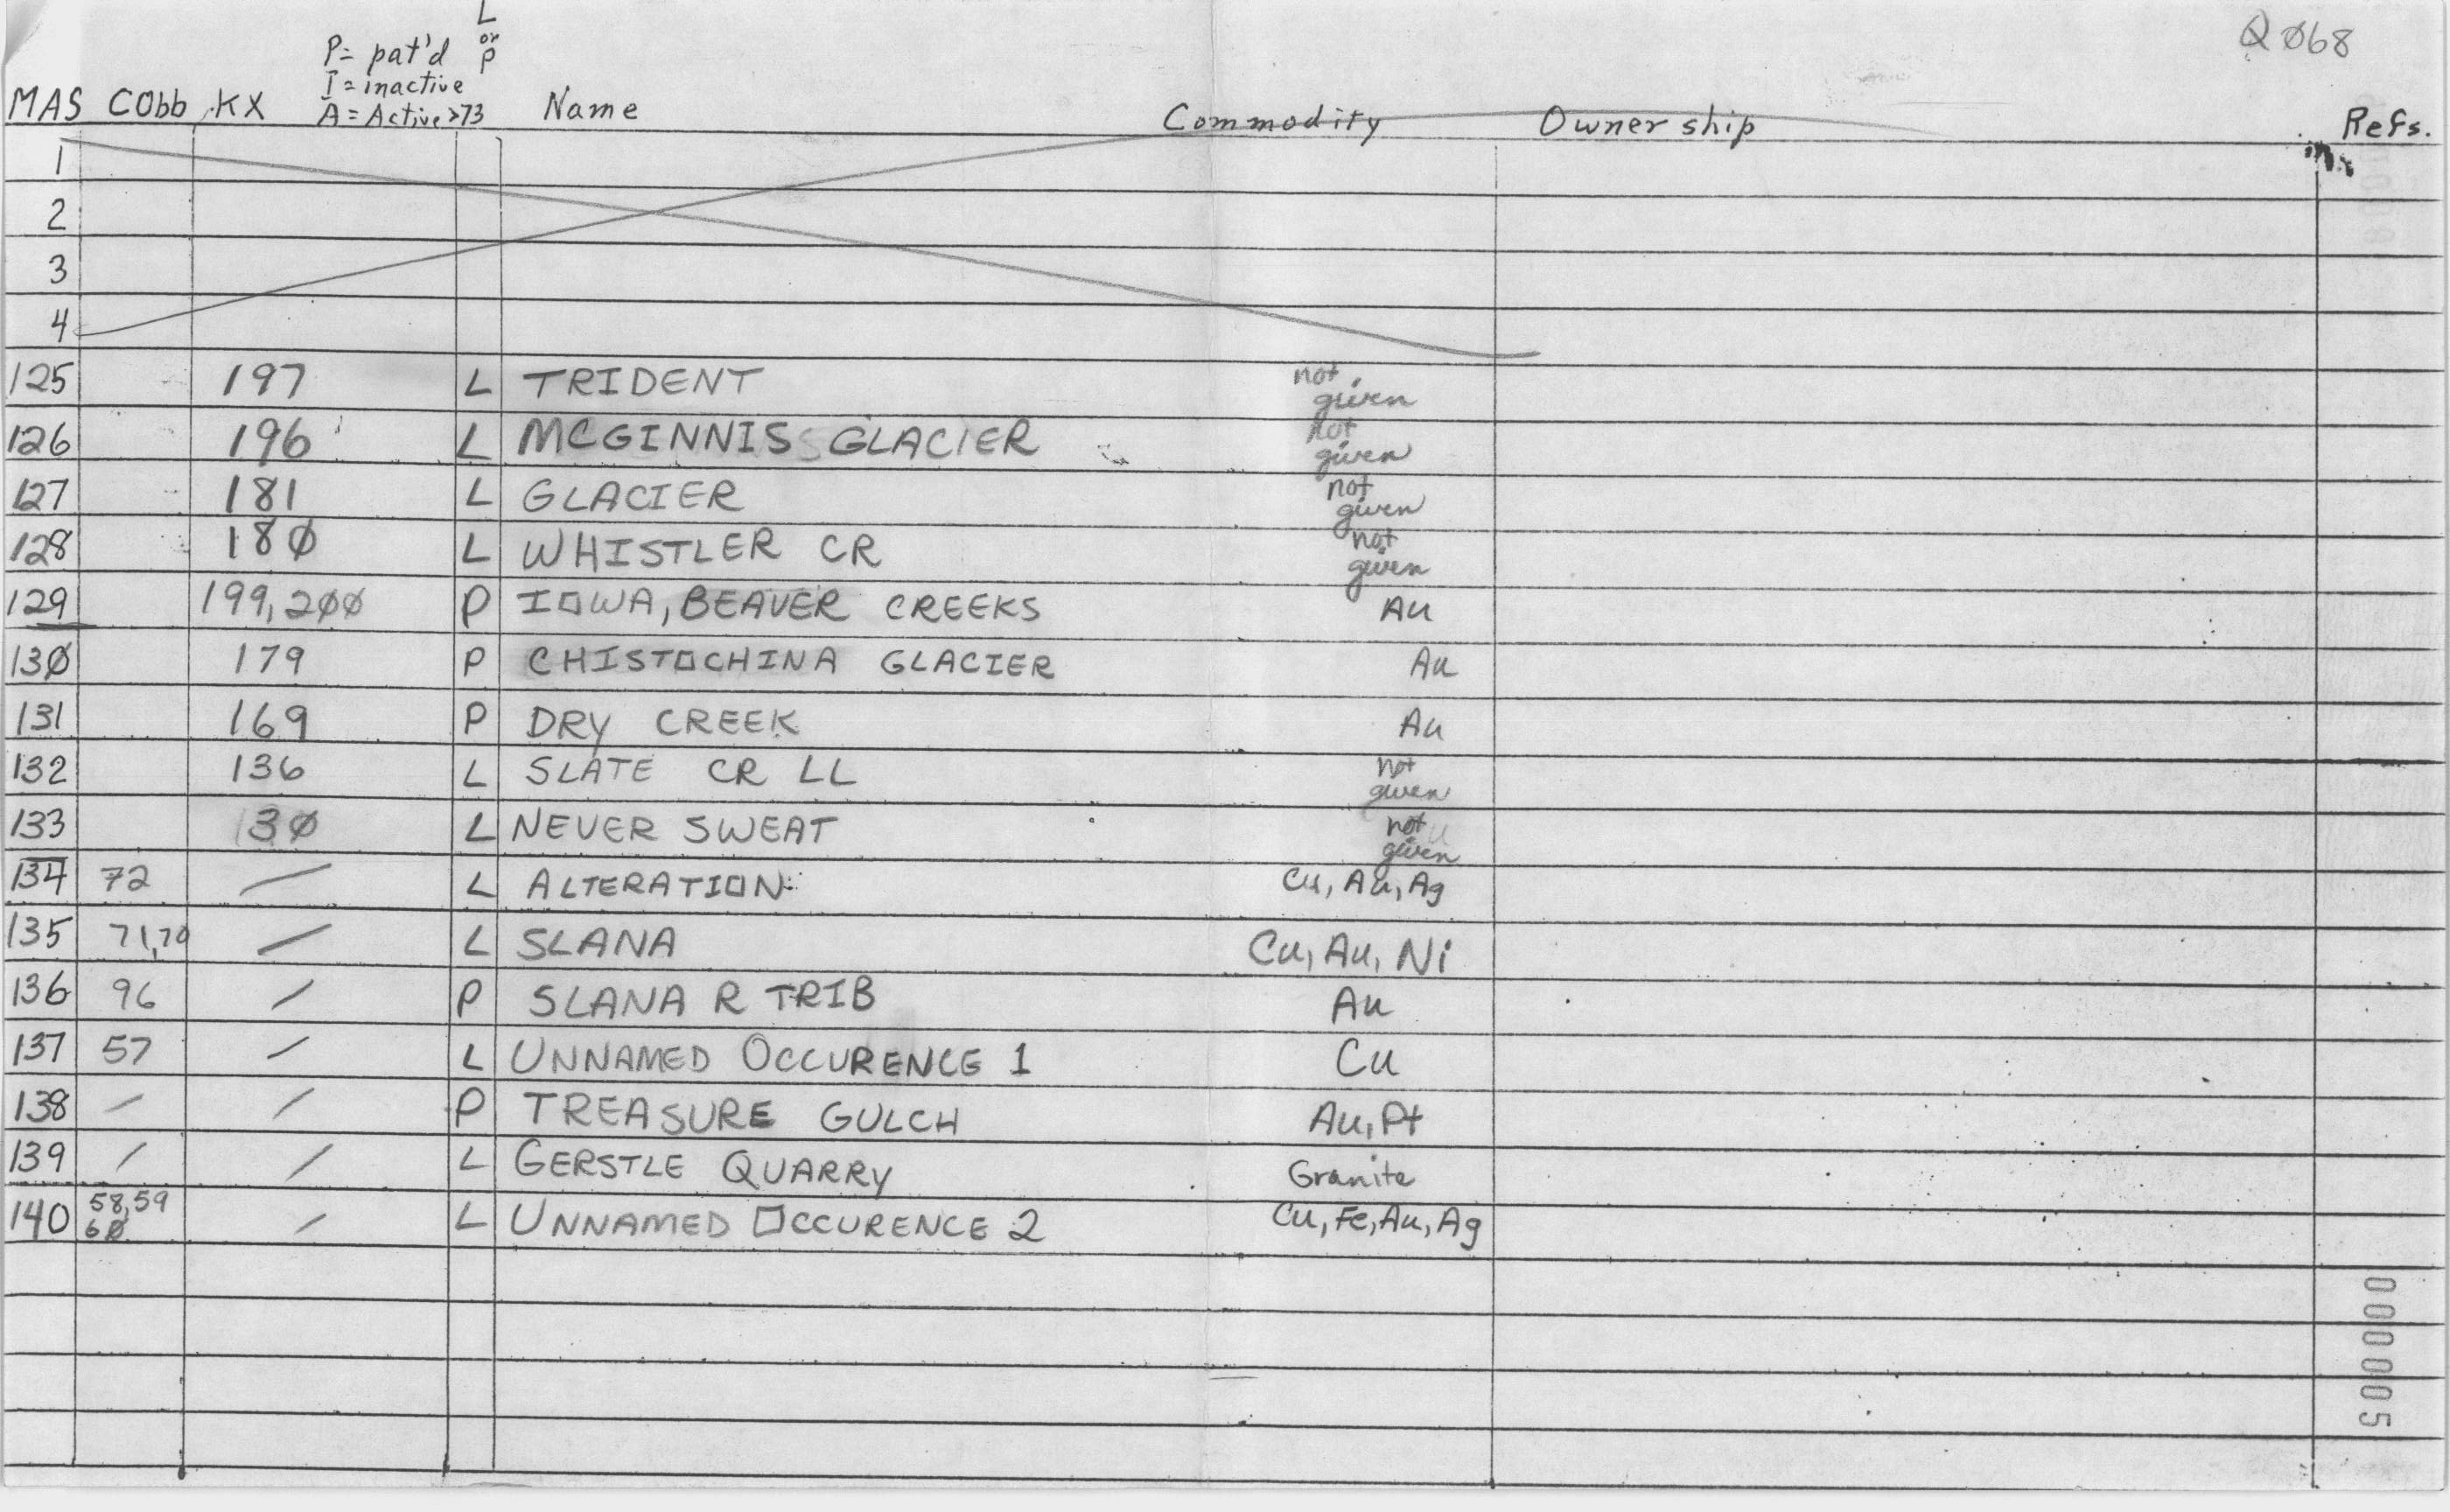 L
or
P
Q Ø68
P= pat'd
I = inactive
A = Active >73
MAS Cobb KX Name Commodity Ownership Refs.
1
2
3
4
125 197 L TRIDENT not given
126 196 L MCGINNIS GLACIER not given
127 181 L GLACIER not given
128 18Ø L WHISTLER CR not given
129 199, 2ØØ P IOWA, BEAVER CREEKS Au
13Ø 179 P CHISTOCHINA GLACIER Au
131 169 P DRY CREEK Au
132 136 L SLATE CR LL not given
133 13Ø L NEVER SWEAT not given
134 72 / L ALTERATION Cu, Au, Ag
135 71,70 / L SLANA Cu, Au, Ni
136 96 / P SLANA R TRIB Au
137 57 / L UNNAMED OCCURENCE 1 Cu
138 / / P TREASURE GULCH Au, Pt
139 / / L GERSTLE QUARRY Granite
140 58,59 6Ø / L UNNAMED OCCURENCE 2 Cu, Fe, Au, Ag
000005